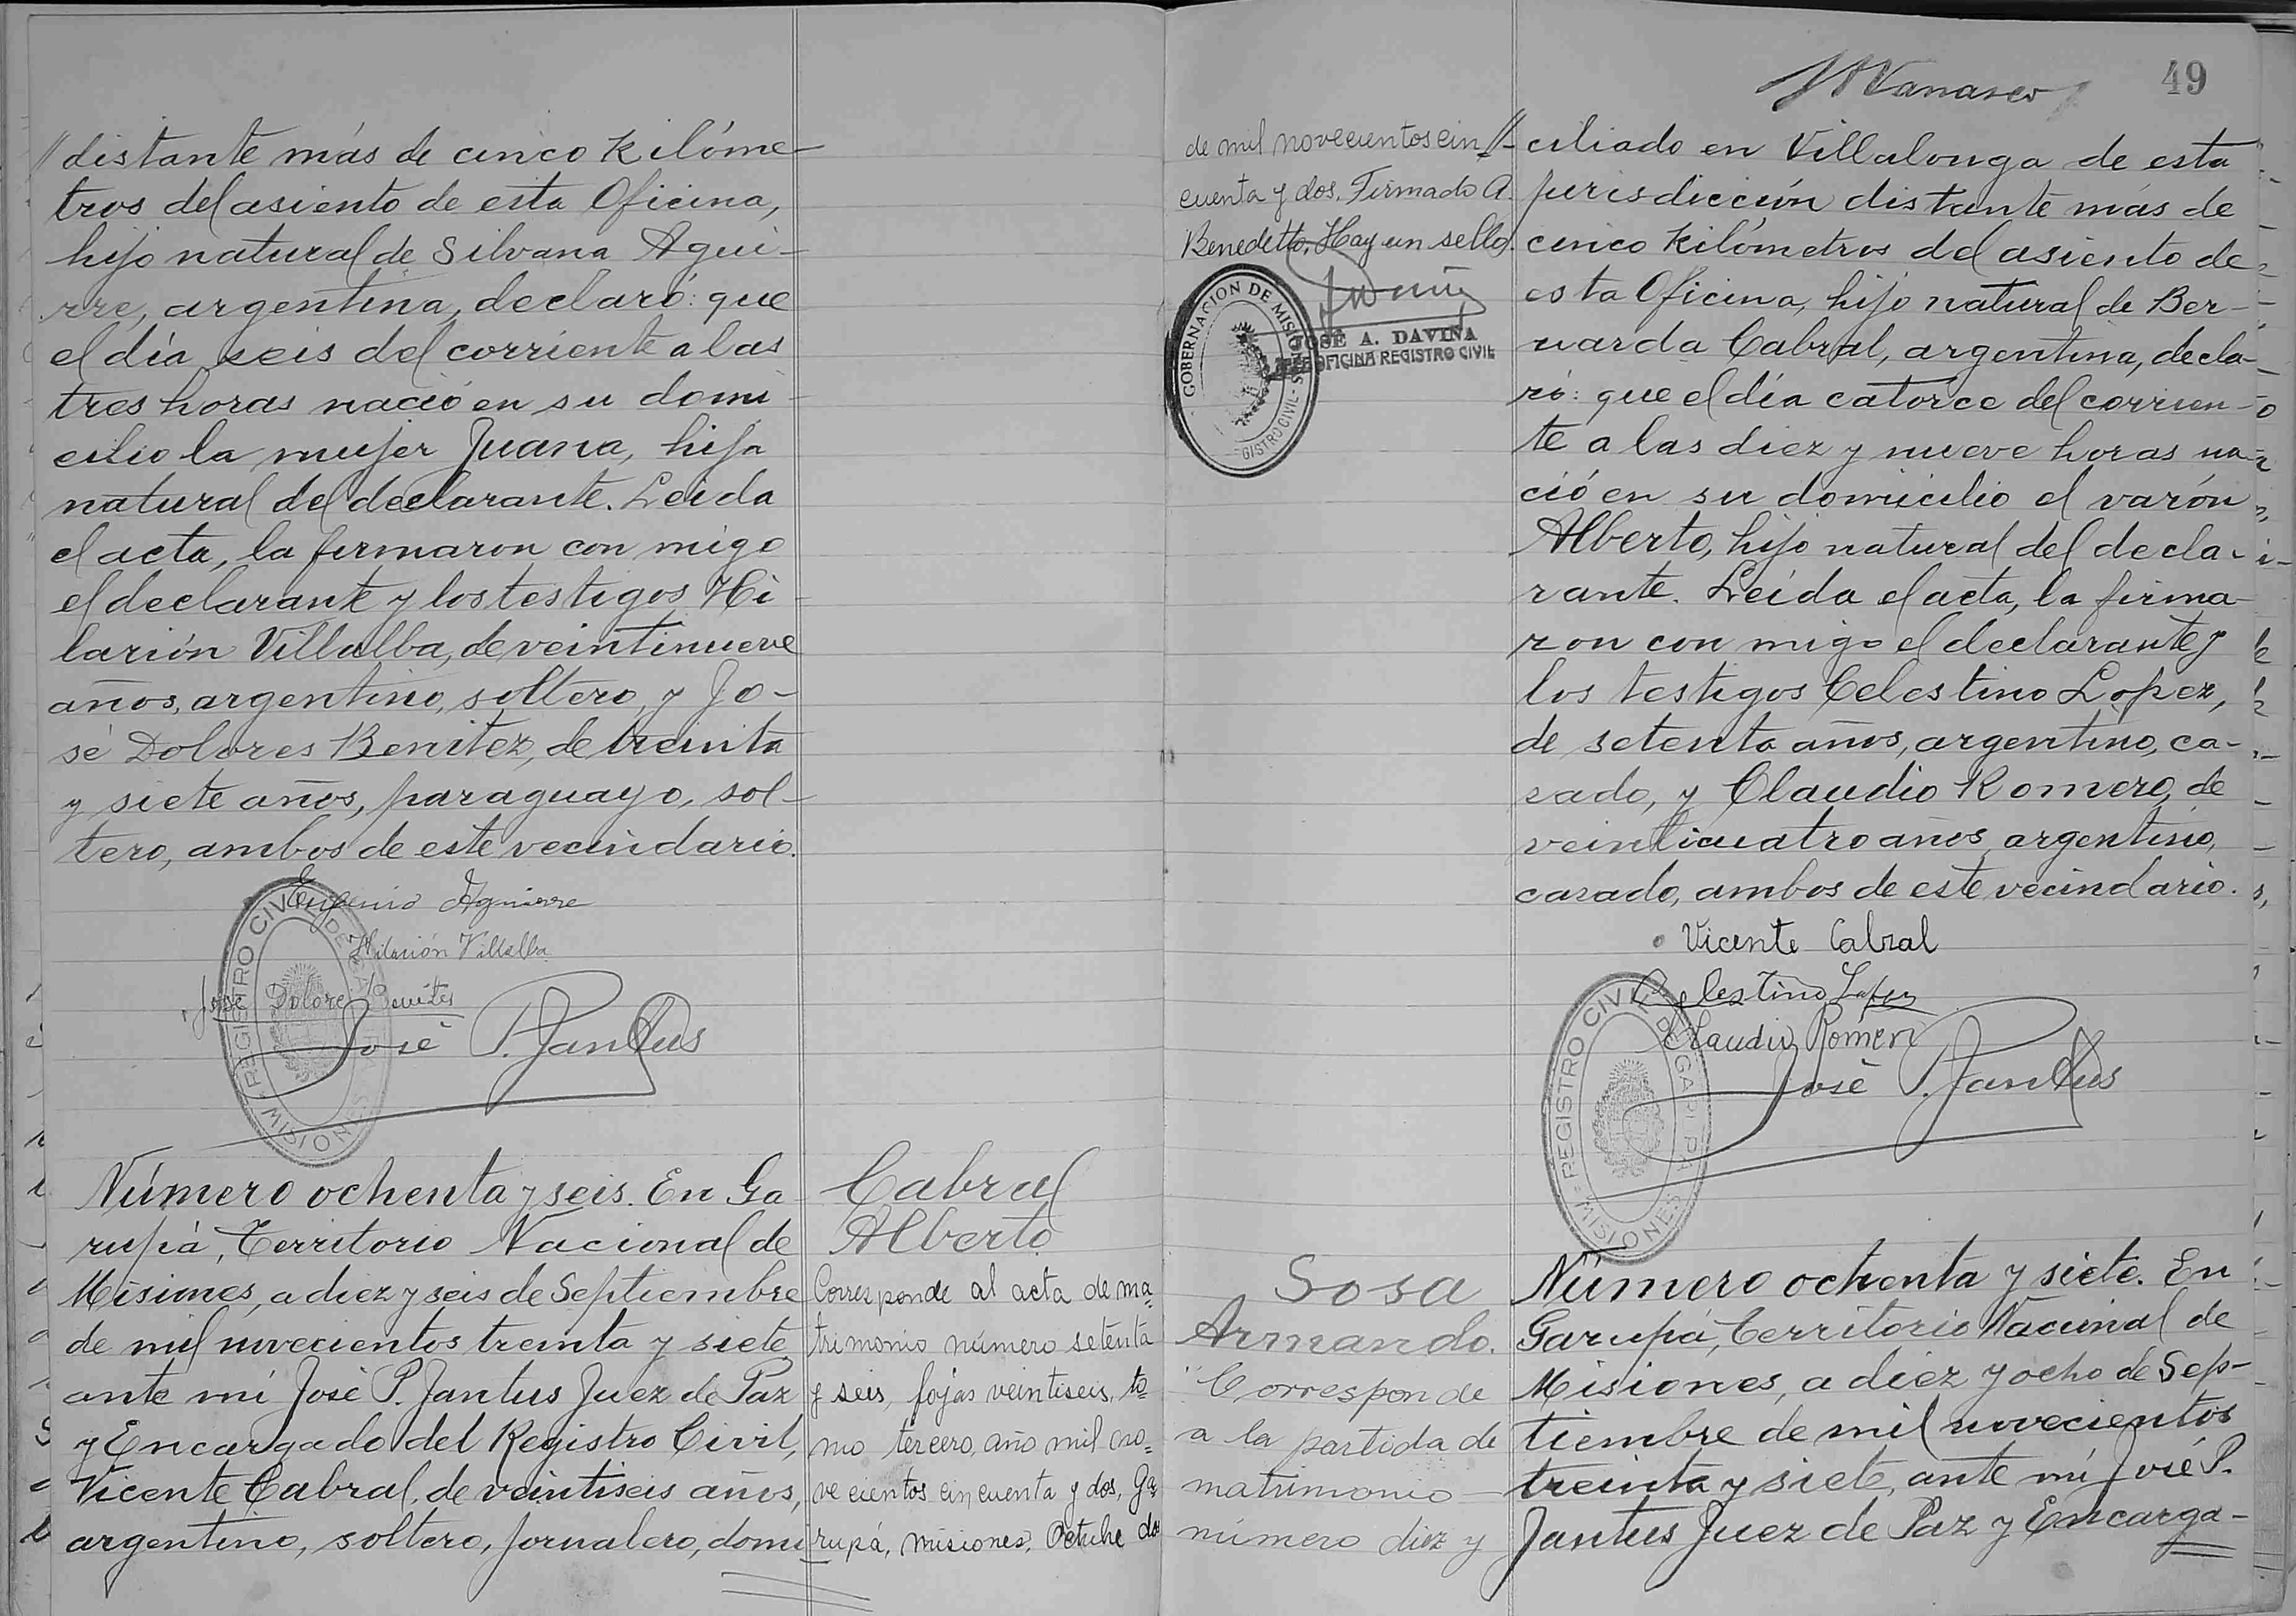 // distante más de cinco kilóme-
tros del asiento de esta Oficina,
hijo natural de Silvana Agui-
rre, argentina, declaró: que
el día seis del corriente a las
tres horas nació en su domi-
cilio la mujer Juana, hija
natural del declarante. Leída
el acta, la firmaron con migo
el declarante y los testigos Hi-
larión Villalba, de veintinueve
años, argentino, soltero, y Jo-
sé Dolores Benitez, de treinta
y siete años, paraguayo, sol-
tero, ambos de este vecindario.
Eugenio Aguirre
Hilarión Villalba
José Dolore Benites
José P. Jantus
REGISTRO CIVIL DE GARUPA
MISIONES
Número ochenta y seis. En Ga-
rupá, Territorio Nacional de
Misiones, a diez y seis de Septiembre
de mil novecientos treinta y siete
ante mí José P. Jantus Juez de Paz
y Encargado del Registro Civil,
Vicente Cabral, de veintiseis años,
argentino, soltero, jornalero, domi
Cabral
Alberto
Corresponde al acta de ma=
trimonio número setenta
y seis, fojas veintiseis, to=
mo tercero, año mil no=
ve cientos cincuenta y dos, Ga=
rupá, Misiones, Octubre dos
de mil novecientos cin //-
cuenta y dos. Firmado A.
Benedetto. Hay un sello.
GOBERNACION DE MISIONES
REGISTRO CIVIL
JOSÉ A. DAVIÑA
JEFE OFICINA REGISTRO CIVIL
49
ciliado en Villalonga de esta
jurisdicción distante más de
cinco kilómetros del asiento de
esta Oficina, hijo natural de Ber-
narda Cabral, argentina, decla-
ró: que el día catorce del corrien-
te a las diez y nueve horas na-
ció en su domicilio el varón
Alberto, hijo natural del decla-
rante. Leída el acta, la firma-
ron con migo el declarante y
los testigos Celestino Lopez,
de setenta años, argentino, ca-
sado, y Claudio Romero, de
veinticuatro años, argentino,
casado, ambos de este vecindario.
Vicente Cabral
Celestino Lopez
Claudio Romero
José P. Jantus
REGISTRO CIVIL DE GARUPA
MISIONES
Sosa
Armando.
"Correspon de
a la partida de
matrimonio
número diez y
Número ochenta y siete. En
Garupá, Territorio Nacional de
Misiones, a diez y ocho de Sep-
tiembre de mil novecientos
treinta y siete, ante mí José P.
Jantus Juez de Paz y Encarga-